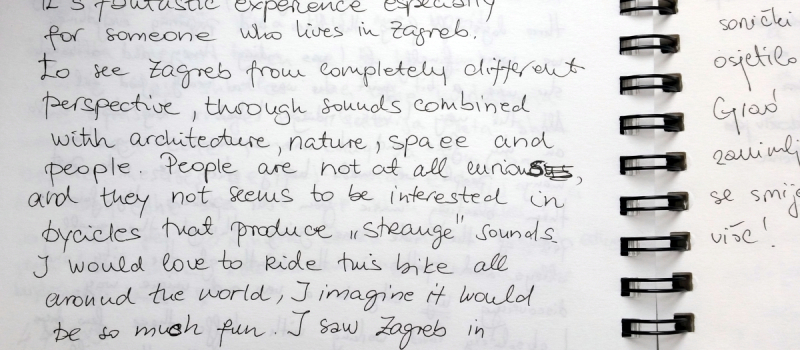 It's fantastic experience especially
for someone who lives in Zagreb.
To see Zagreb from completely different
perspective, through sounds combined
with architecture, nature, space and
people. People are not at all curious,
and they not seems to be interested in
bycicles that produce „strange" sounds.
I would love to ride this bike all
around the world, I imagine it would
be so much fun. I saw Zagreb in
sonički
osjetilo
Grad
zanimlj
se smije
više!